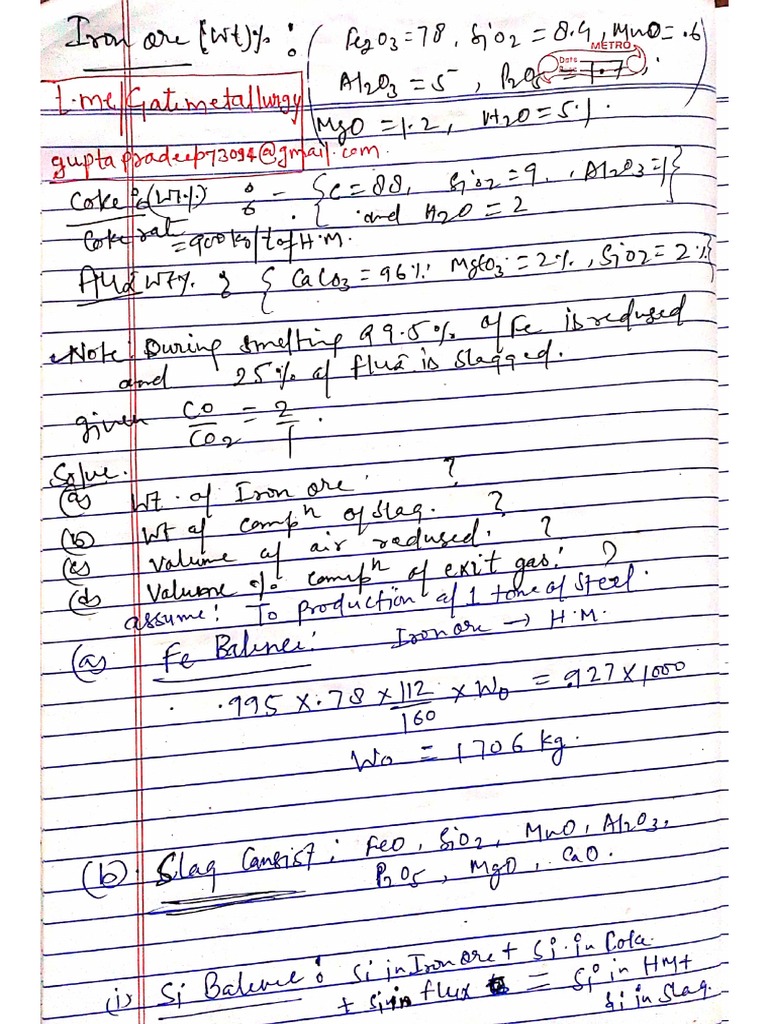 Iron ore (wt)% : ( Fe2O3 = 78, SiO2 = 8.4, MnO = .6
METRO
Date
Al2O3 = 5, P2O5 = 1.7,
t.me/Gatimetallurgy
MgO = 1.2, H2O = 5%. )
guptapradeep73094@gmail.com.
Coke (wt%) :- { C = 88, SiO2 = 9, Al2O3 = 1
and H2O = 2 }
Coke rate
= 900 kg/t of H.M.
Flux wt%. { CaCO3 = 96%. MgCO3 = 2%, SiO2 = 2%. }
Note: During smelting 99.5% of Fe is redused
and 25% of flux is slagged.
given CO/CO2 = 2/1.
Solve.
(a) Wt. of Iron ore. ?
(b) Wt of compn of slag. ?
(c) Volume of air radused. ?
(d) Volume % compn of exit gas. ?
assume! To production of 1 tone of steel.
Iron ore → H.M.
(a) Fe Balence:
.995 x .78 x 112/160 x Wo = .927 x 1000
Wo = 1706 kg.
(b) Slag Consist: FeO, SiO2, MnO, Al2O3,
P2O5, MgO, CaO.
(i) Si Balence: Si in Iron ore + Si in Coke
+ Si in flux = Si in HM +
Si in Slag.